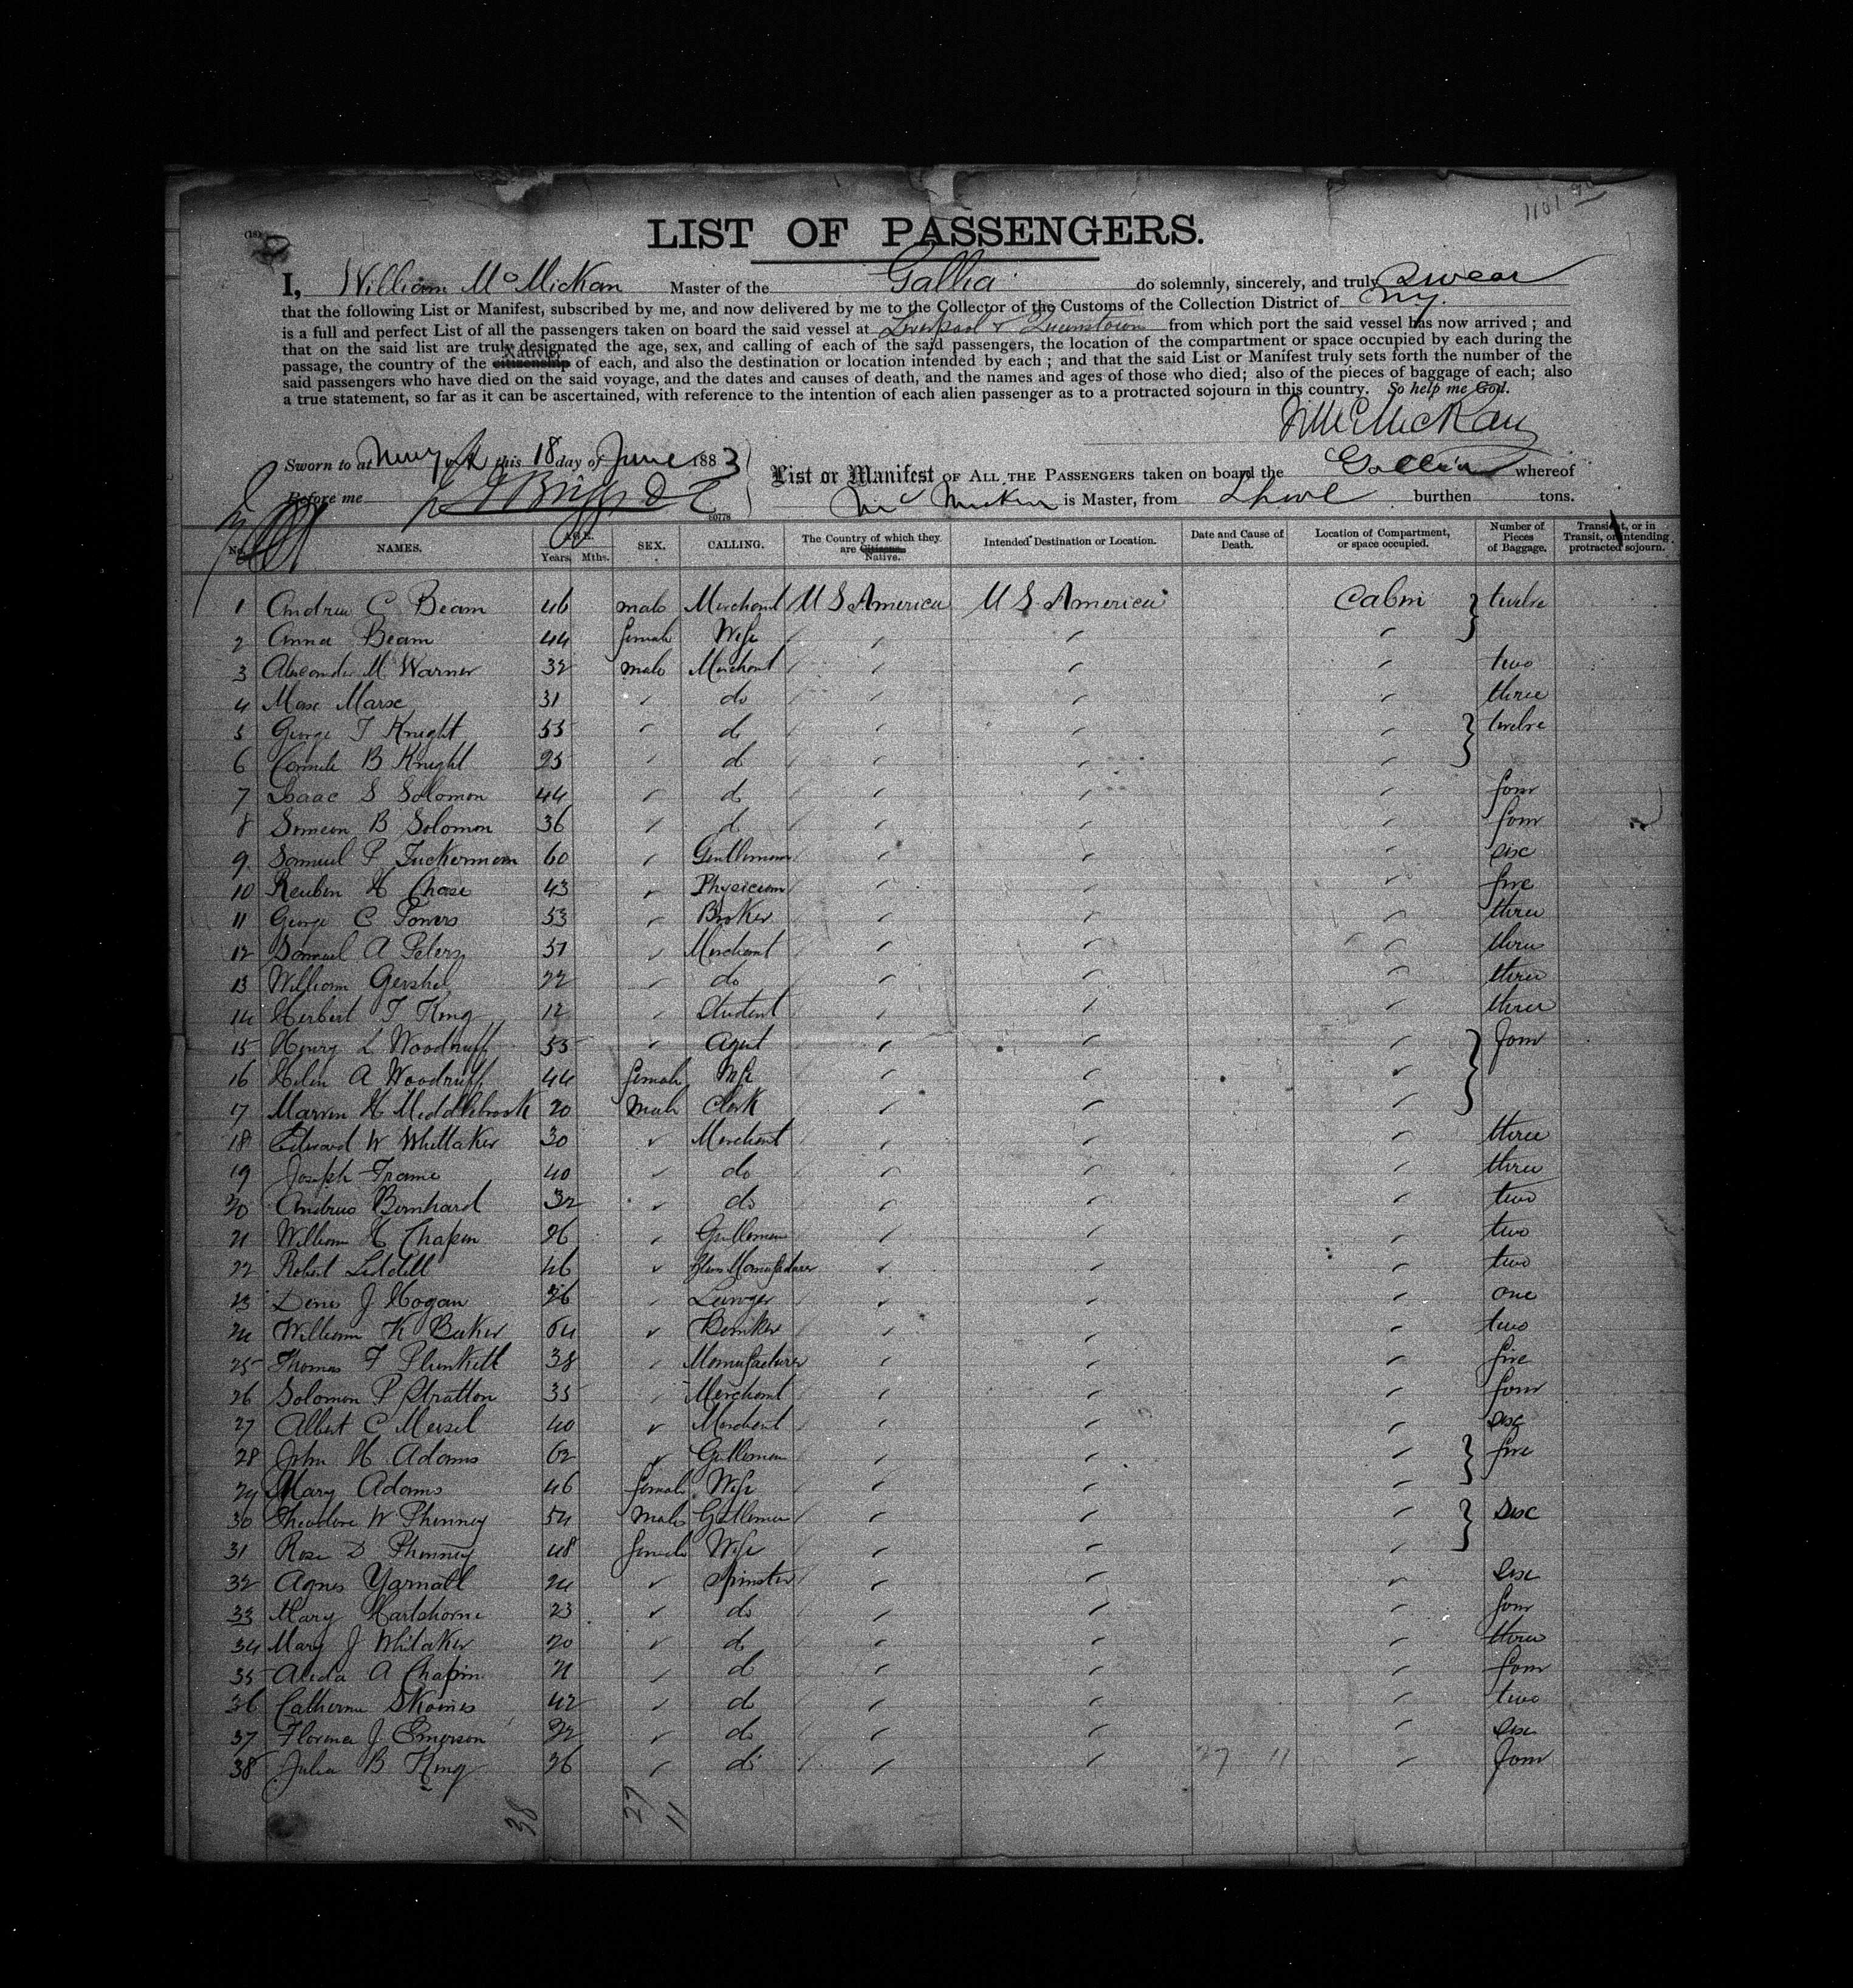 1101
LIST OF PASSENGERS.
I, William McMickan Master of the Gallia do solemnly, sincerely, and truly Swear
that the following List or Manifest, subscribed by me, and now delivered by me to the Collector of the Customs of the Collection District of N.Y.
is a full and perfect List of all the passengers taken on board the said vessel at Liverpool & Queenstown from which port the said vessel has now arrived; and
that on the said list are truly designated the age, sex, and calling of each of the said passengers, the location of the compartment or space occupied by each during the
passage, the country of the citizenship Native of each, and also the destination or location intended by each; and that the said List or Manifest truly sets forth the number of the
said passengers who have died on the said voyage, and the dates and causes of death, and the names and ages of those who died; also of the pieces of baggage of each; also
a true statement, so far as it can be ascertained, with reference to the intention of each alien passenger as to a protracted sojourn in this country. So help me God.
McMickan
Sworn to at New York this 18 day of June 1883
List or Manifest OF ALL THE PASSENGERS taken on board the Gallia whereof
Before me
Mc Mickan is Master, from L'pool burthen tons.
No. NAMES. AGE. Years. Mths. SEX. CALLING. The Country of which they are Citizens. Native. Intended Destination or Location. Date and Cause of Death. Location of Compartment, or space occupied. Number of Pieces of Baggage. Transient, or in Transit, or intending protracted sojourn.
1 Andrew C Beam 46 male Merchant U S America U S America Cabin } twelve
2 Anna Beam 44 female Wife
3 Alexander M Warner 32 male Merchant two
4 Marx 31 do three
5 George T Knight 55 do } twelve
6 B Knight 25 do
7 Isaac S Solomon 44 do four
8 Simeon B Solomon 36 do four
9 Samuel P Tuckerman 60 Gentleman six
10 Reuben H Chase 43 Physician five
11 George C Towers 53 Broker three
12 Samuel A Peters 51 Merchant three
13 William Gershel 22 do three
14 Herbert T King 12 Student three
15 Henry L Woodruff 55 Agent } four
16 Helen A Woodruff 44 female Wife
17 Marvin H Middlebrook 20 Male Clerk
18 Edward W Whittaker 30 Merchant three
19 Joseph Frame 40 do three
20 Andrew Bernhard 32 do two
21 William H Chapin 26 Gentleman two
22 Robert Liddell 46 Glass Manufacturer two
23 Denis J Hogan 26 Lawyer one
24 William K Baker 64 Banker two
25 Thomas F Plunkett 38 Manufacturer five
26 Solomon P Stratton 35 Merchant four
27 Albert C Meisel 40 Merchant six
28 John H Adams 62 Gentleman } five
29 Mary Adams 46 female Wife
30 Theodore W Phinney 54 Male Gentleman } Six
31 Rose D Phinney 48 female Wife
32 Agnes Yarnall 24 Spinster six
33 Mary Hartshorne 23 do four
34 Mary J Whitaker 20 do three
35 Alida A Chapin 21 do four
36 Catherine 42 do two
37 Florence J Emerson 22 do six
38 Julia B King 26 do 27 11 four
38 27 11